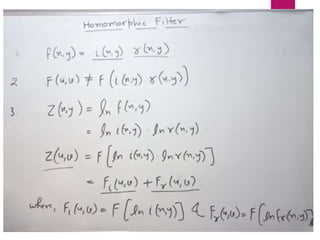 Homomorphic Filter
1 f(x,y) = i(x,y) r(x,y)
2 F(u,v) ≠ F(i(x,y) r(x,y))
3. Z(x,y) = ln f(x,y)
= ln i(x,y) . ln r(x,y)
Z(u,v) = F[ln i(x,y) ln r(x,y)]
= Fi(u,v) + Fr(u,v)
where, Fi(u,v) = F[ln i(x,y)] & Fr(u,v) = F[ln fr(x,y)]